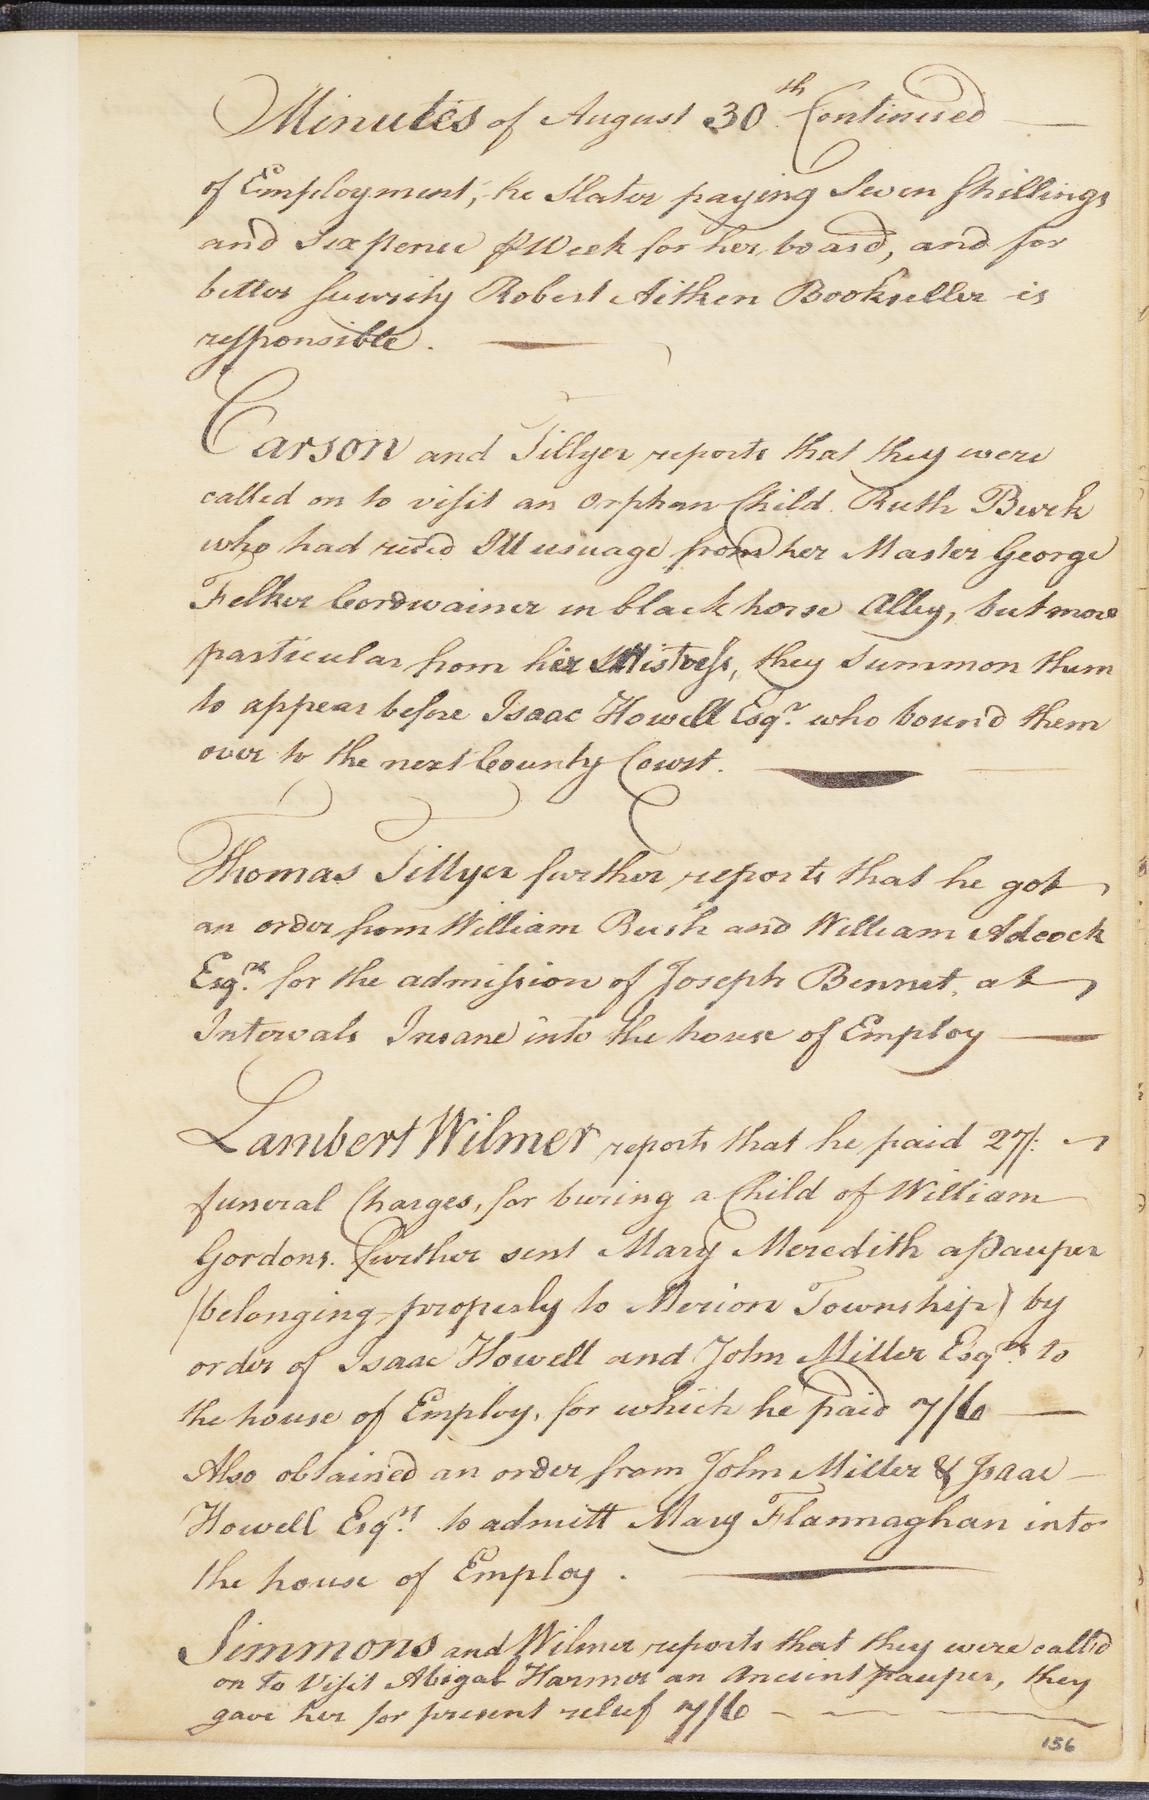 Minutes of August 30th Continued
of Employment, he Slater paying Seven Shillings
and Sixpence ⅌ Week for her board, and for
better security Robert Aitken Bookseller is
responsible.
Carson and Tillyer reports that they were
called on to visit an orphan Child. Ruth Burk
who had recd Ill usuage from her Master George
Felker Cordwainer in black horse Alley, but more
particular from her Mistress, they Summon them
to appear before Isaac Howell Esqr. who bound them
over to the next County Court.
Thomas Tillyer further reports that he got
an order from William Rush and William Adcock
Esqrs. for the admission of Joseph Bennet, at
Intervals Insane into the house of Employ
Lambert Wilmer reports that he paid 27/.
funeral Charges, for buring a Child of William
Gordons. Further sent Mary Meredith a Pauper
(belonging properly to Merion Township) by
order of Isaac Howell and John Miller Esqrs. to
the house of Employ, for which he paid 7/6
Also obtained an order from John Miller & Isaac
Howell Esqrs. to admitt Mary Flannaghan into
the house of Employ.
Simmons and Wilmer reports that they were called
on to Visit Abigal Harmer an Ancient pauper, they
gave her for present relief 7/6
156